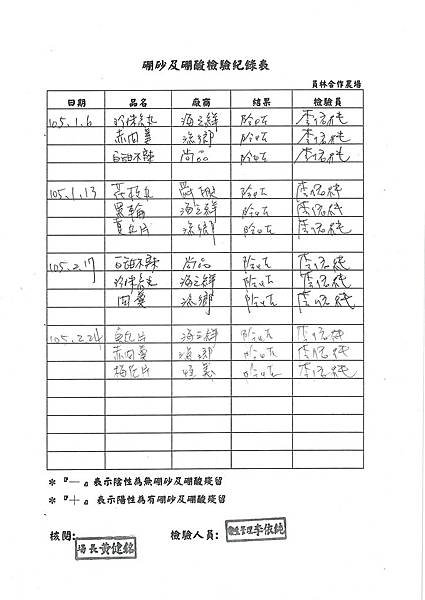 硼砂及硼酸檢驗紀錄表
員林合作農場
日期 品名 廠商 結果 檢驗員
105.1.6 珍珠丸 海之鮮 陰性 李依純
赤肉羹 漁鄉 陰性 李依純
白甜不辣 尚品 陰性 李依純
105.1.13 陰性 李依純
黑輪 海之鮮 陰性 李依純
魚丸片 漁鄉 陰性 李依純
105.2.17 白甜不辣 尚品 陰性 李依純
珍珠丸 海之鮮 陰性 李依純
肉羹 漁鄉 陰性 李依純
105.2.24 海之鮮 陰性 李依純
赤肉羹 漁鄉 陰性 李依純
陰性 李依純
*『—』表示陰性為無硼砂及硼酸殘留
*『+』表示陽性為有硼砂及硼酸殘留
核閱: 場長黃健銘 檢驗人員: 管理李依純